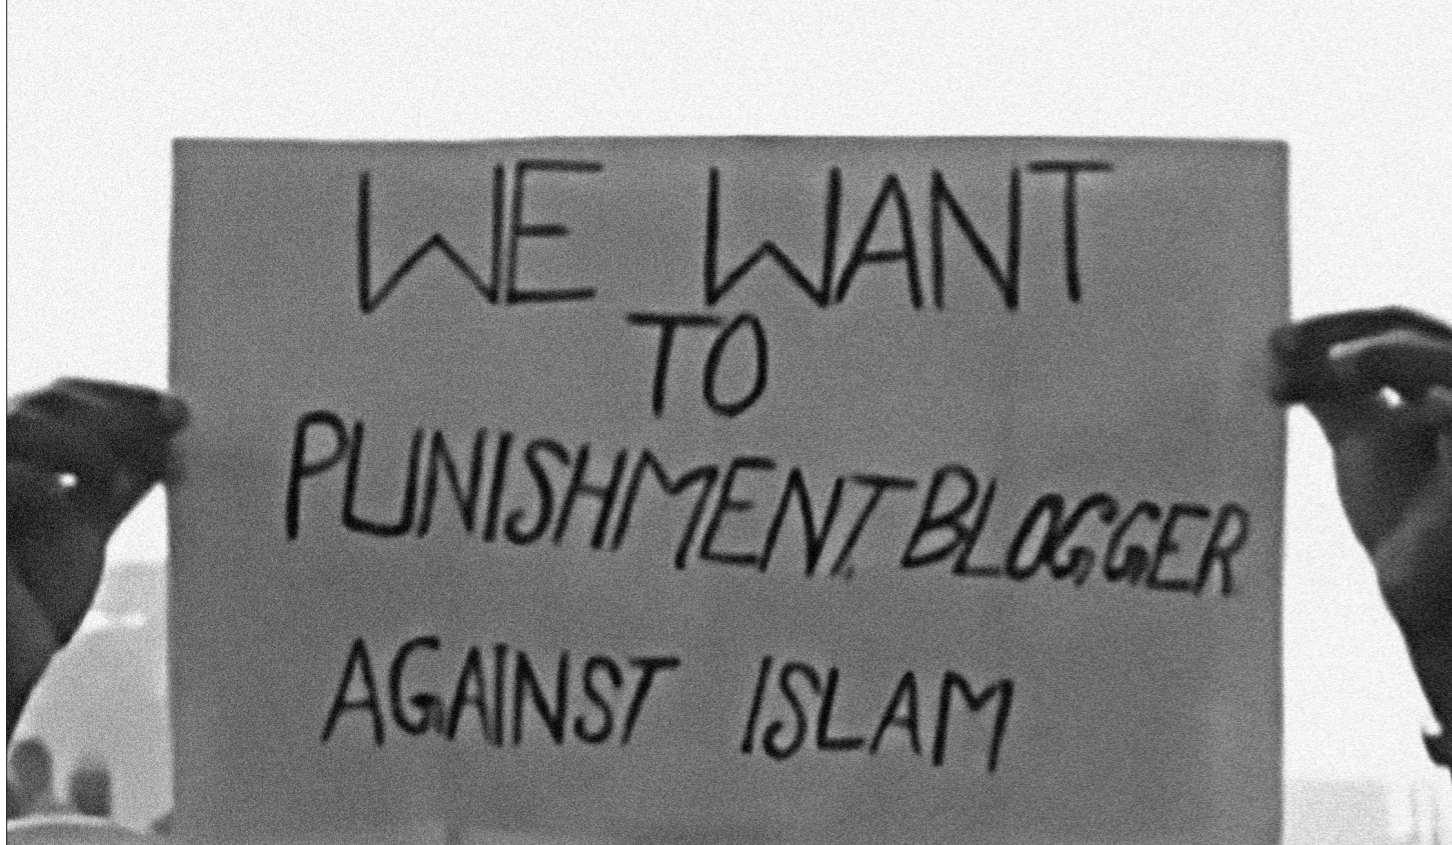 WE WANT
TO
PUNISHMENT BLOGGER
AGAINST ISLAM